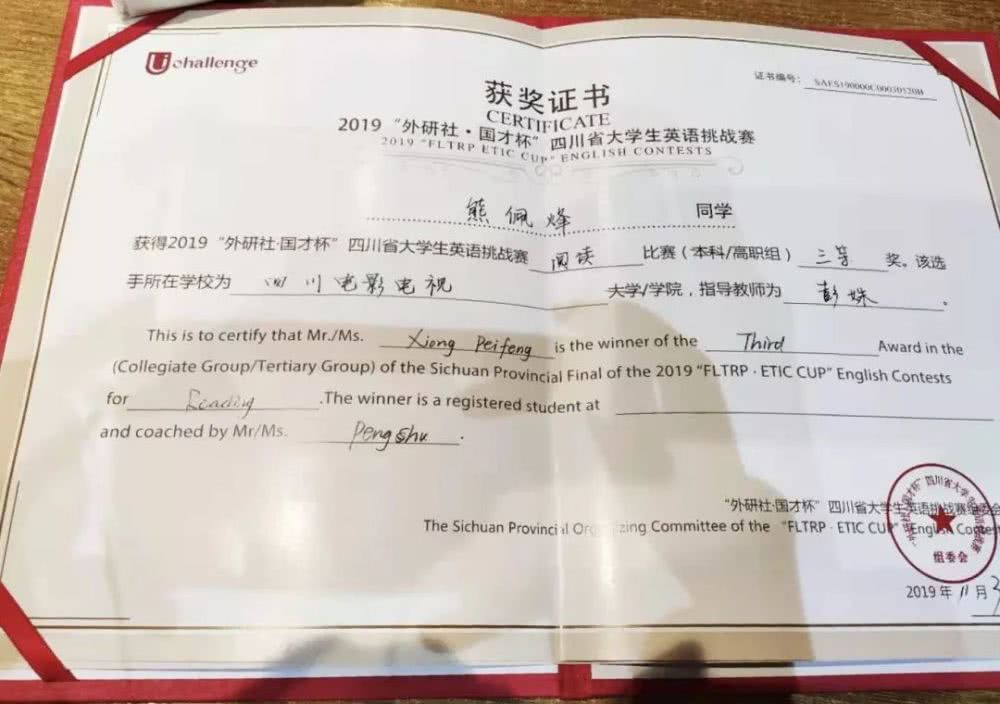 Uchallenge
证书编号： SAFS190000C00030520B
获奖证书
CERTIFICATE
2019 “外研社·国才杯” 四川省大学生英语挑战赛
2019 “FLTRP ETIC CUP” ENGLISH CONTESTS
熊佩烽 同学
获得2019 “外研社·国才杯” 四川省大学生英语挑战赛 阅读 比赛（本科/高职组） 三等 奖。该选
手所在学校为 四川电影电视 大学/学院，指导教师为 彭姝 。
This is to certify that Mr./Ms. Xiong Peifeng is the winner of the Third Award in the
(Collegiate Group/Tertiary Group) of the Sichuan Provincial Final of the 2019 “FLTRP · ETIC CUP” English Contests
for Reading .The winner is a registered student at
and coached by Mr/Ms. Peng shu .
“外研社·国才杯” 四川省大学生英语挑战赛组委会
The Sichuan Provincial Organizing Committee of the “FLTRP · ETIC CUP” English Contests
组委会
2019 年 11 月